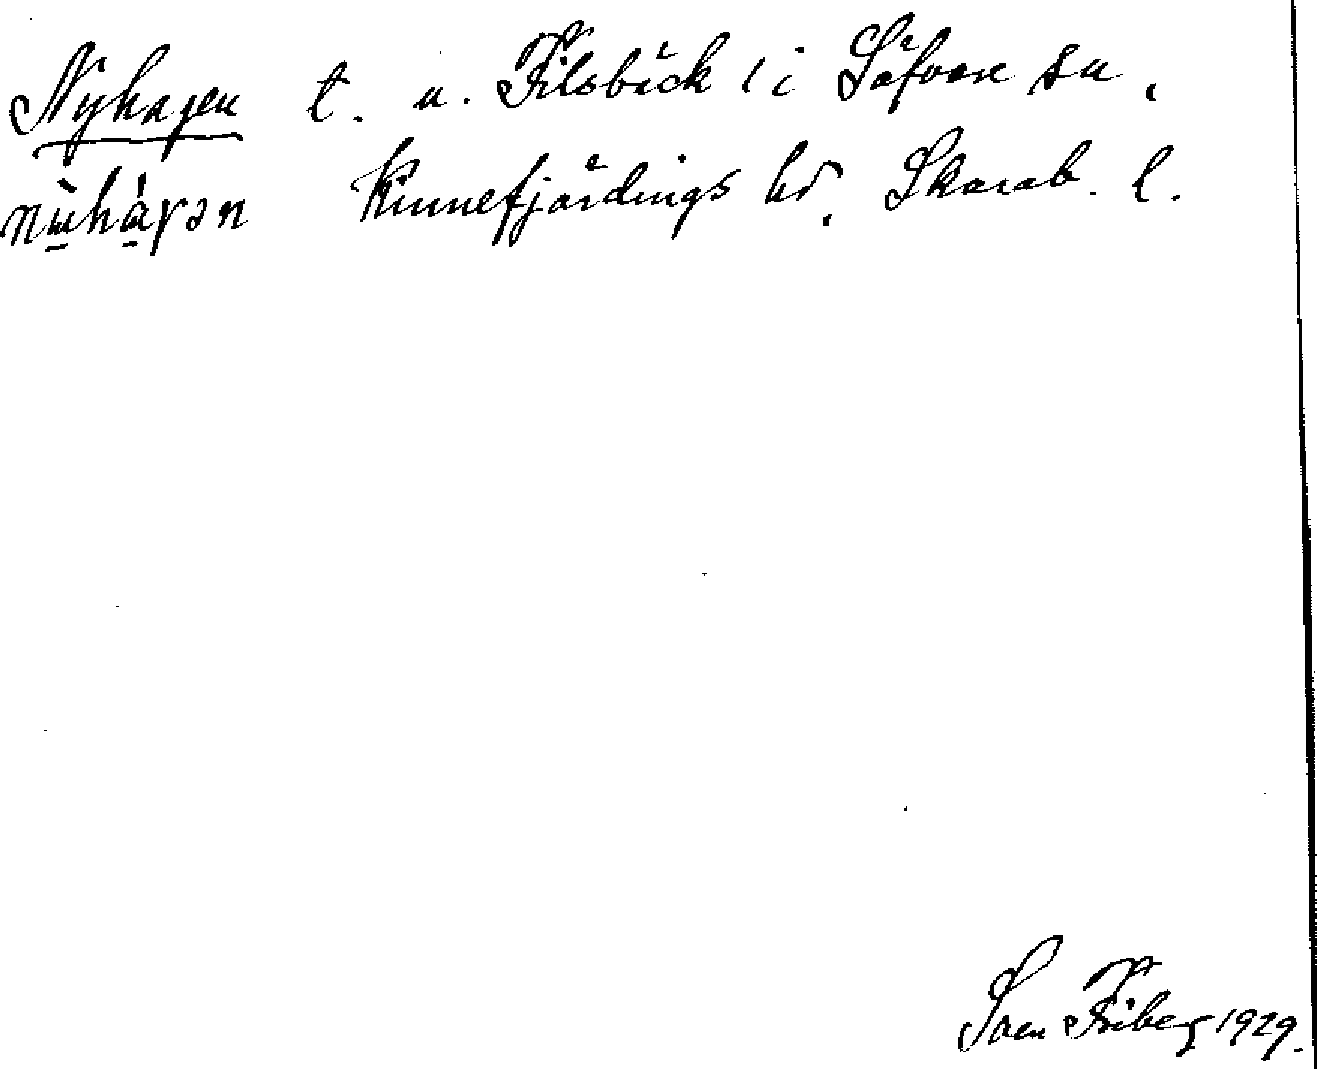 Nyhagen t. u. Filsbäck i Säfvare sn,
nùhá̱γən Kinnefjärdings hd. Skarab. l.
Sven Friberg 1929.